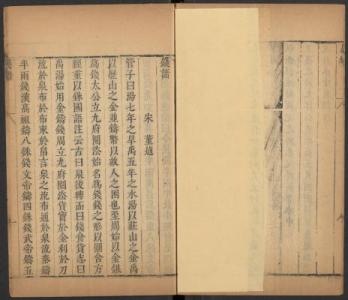 錢譜
宋 董逌
管子曰湯七年之旱禹五年之水湯以莊山之金禹
以歷山之金並鑄幣以救人之困也至周始以金銀
爲錢太公立九府圜法始名爲錢錢之形以圜含方
輕重以銖國語注云古曰泉後轉而曰錢食貨志曰
禹湯始用金鑄錢周立九府圜法貨寳於金利於刀
流於泉布於布束於帛言泉之流布通於泉流秦鑄
半兩錢漢高祖鑄八銖錢文帝鑄四銖錢武帝鑄五